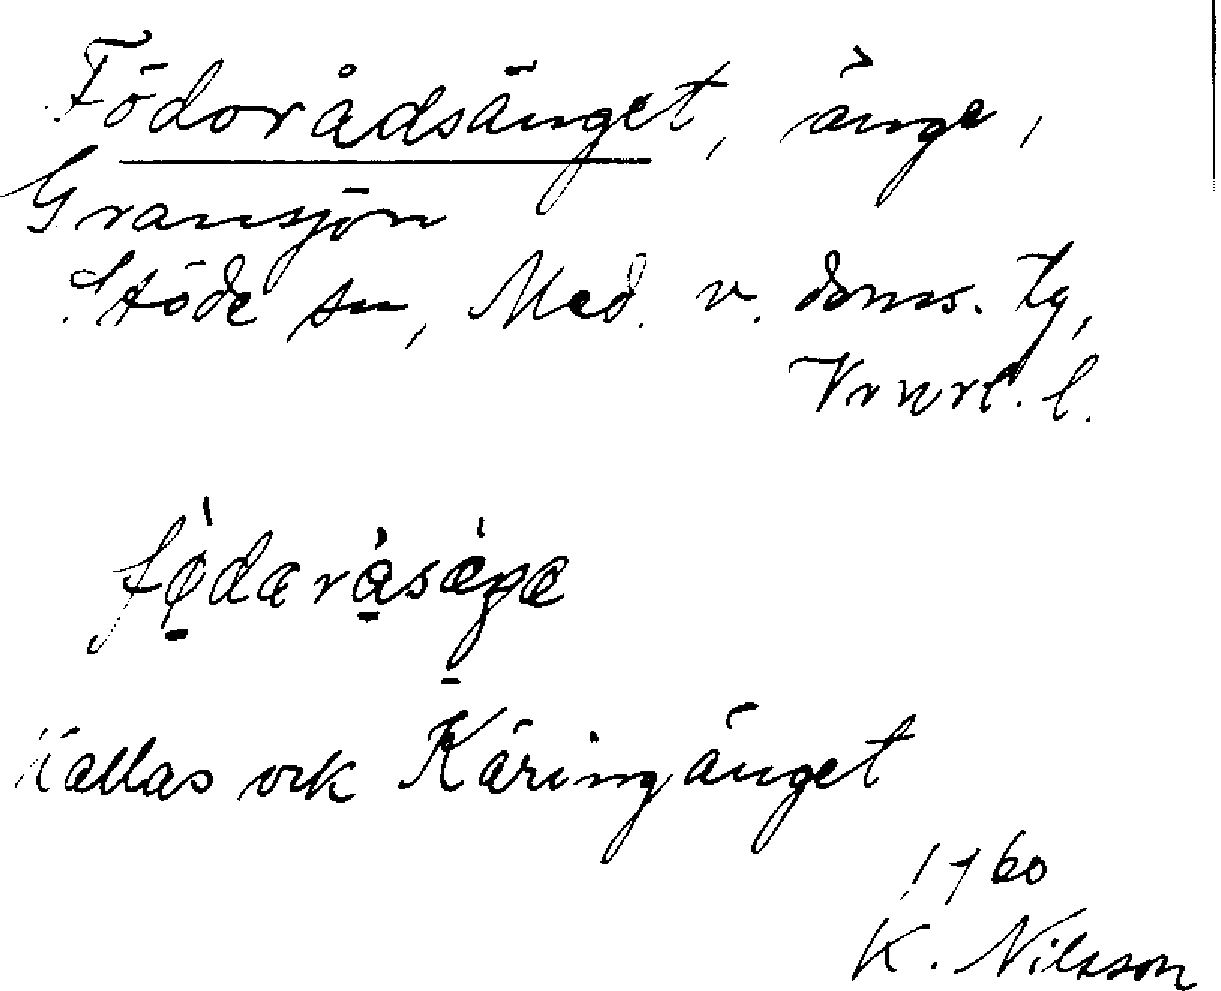 Födorådsänget, änge,
Gransjön
Stöde sn, Med. v. doms. tg,
Vrnrl. l.
Kallas ock Käringänget
1960
K. Nilsson